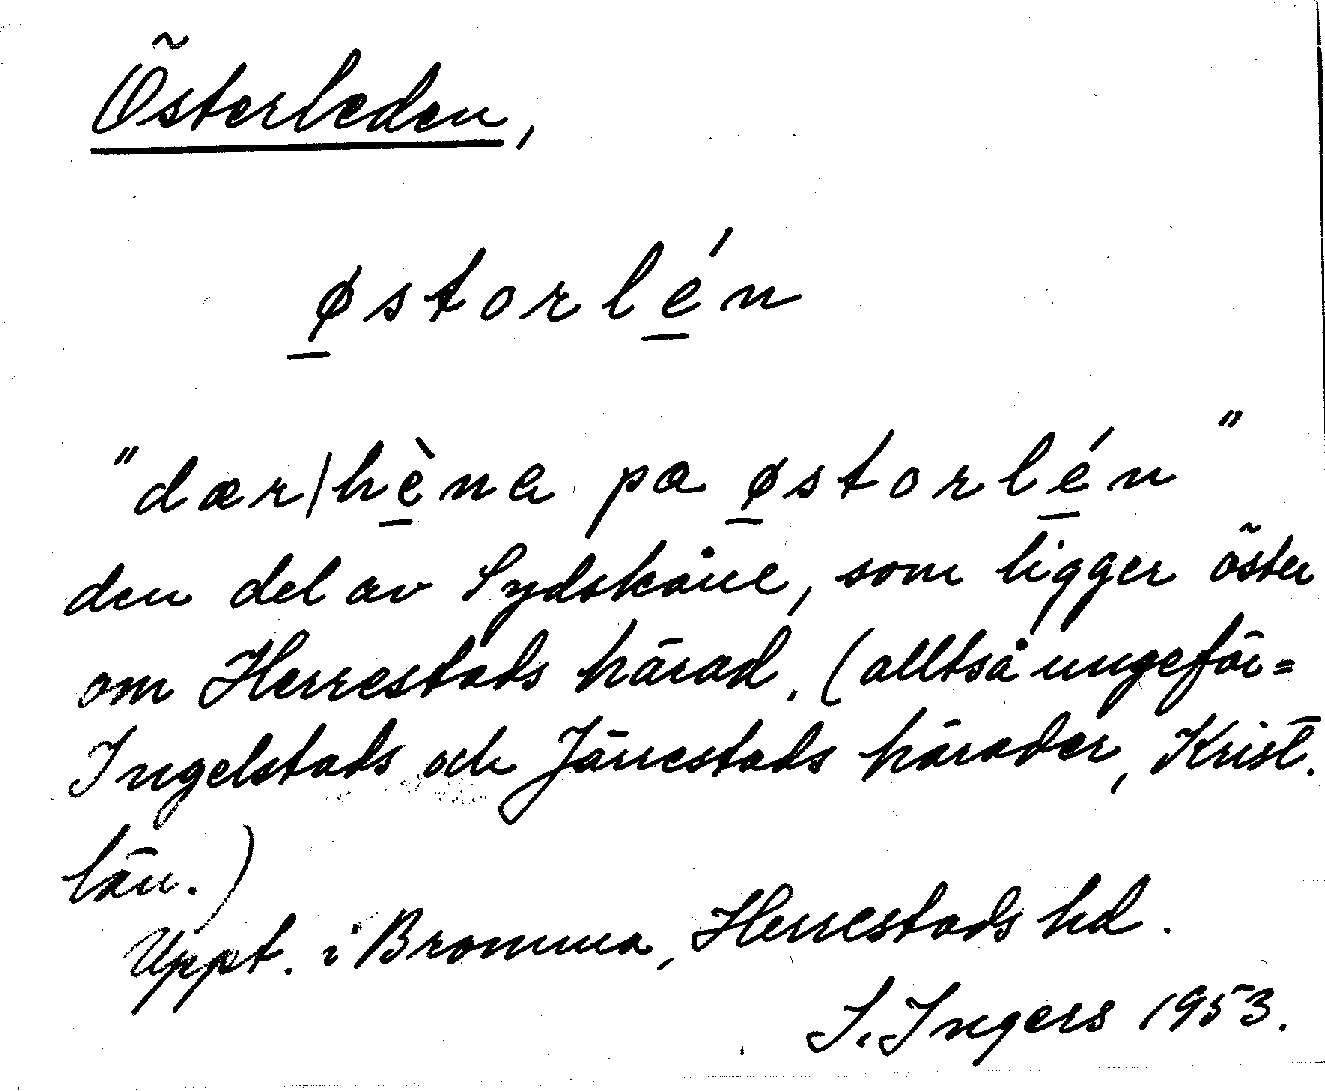 Österleden,
østorlén
"dær/hèna pa østorlén"
den del av Sydskåne, som ligger öster
om Herrestads härad. (alltså ungefär=
Ingelstads och Järrestads härader, Krist.
län.)
Uppt. i Bromma, Herrestads hd.
I. Ingers 1953.